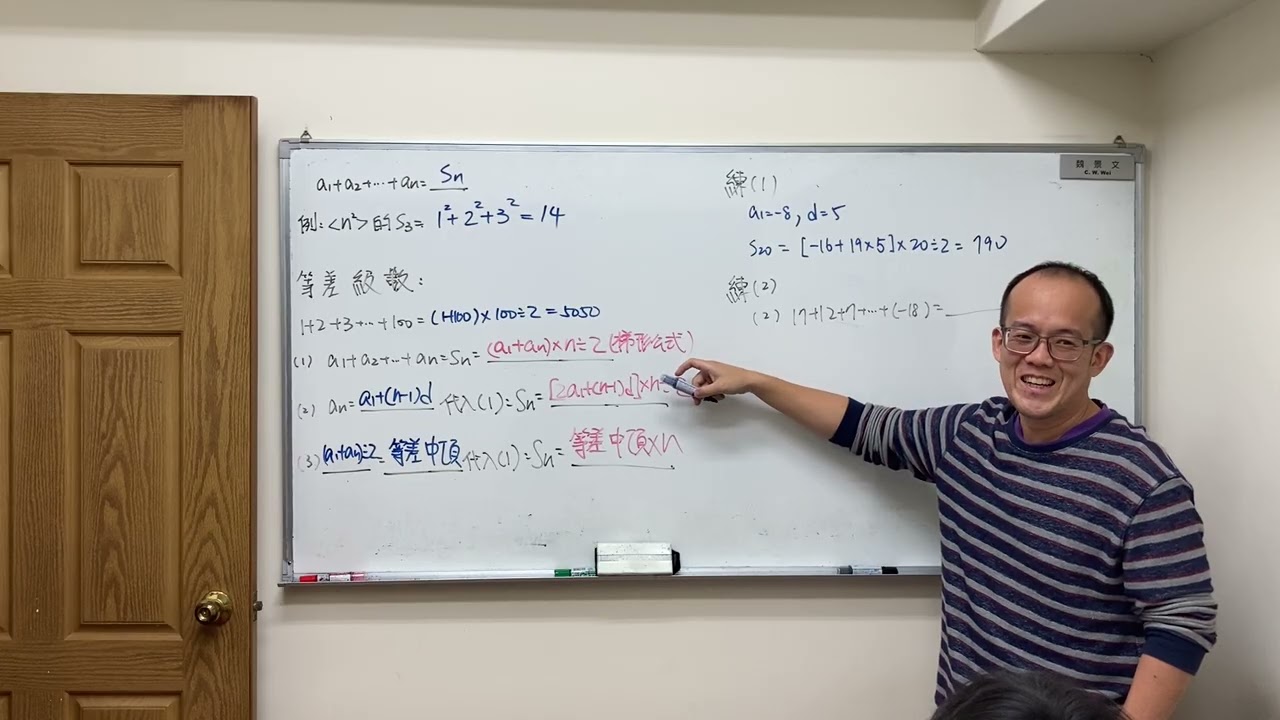 a₁+a₂+⋯+aₙ= Sₙ
例:<n²>的S₃= 1²+2²+3²=14
等差級數:
1+2+3+⋯+100=(1+100)×100÷2=5050
(1) a₁+a₂+⋯+aₙ=Sₙ=(a₁+aₙ)×n÷2(梯形公式)
(2) aₙ=a₁+(n-1)d 代入(1):Sₙ=[2a₁+(n-1)d]×n÷
(3)(a₁+aₙ)÷2=等差中項代入(1):Sₙ=等差中項×n
魏景文
C. W. Wei
練(1)
a₁=-8, d=5
S₂₀=[-16+19×5]×20÷2=790
練(2)
(2) 17+12+7+⋯+(-18)=